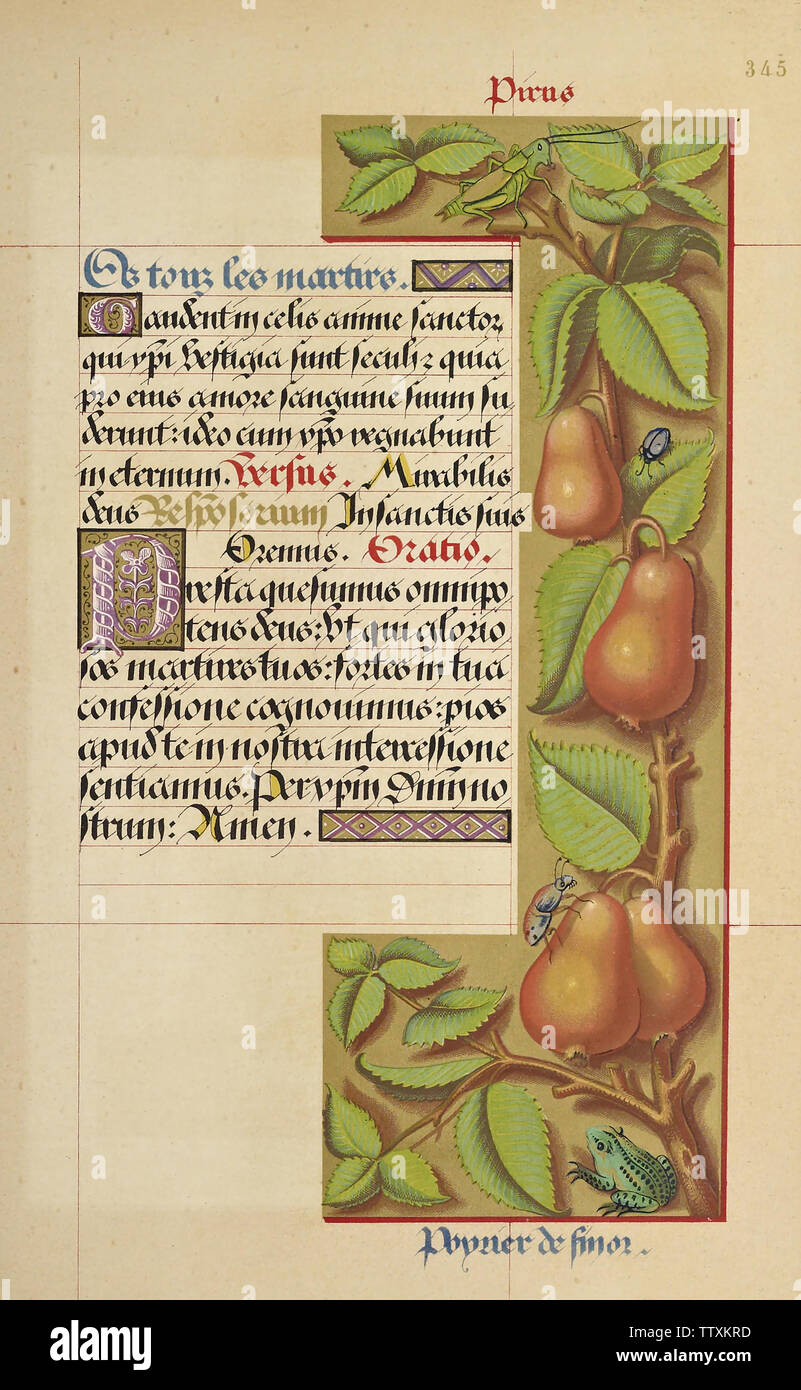 345
Pirus
De touz les martirs.
Gaudent in celis anime sanctor
qui xpi vestigia sunt secuti z quia
pro eius amore sanguine suum fu
derunt: ideo cum xpo regnabunt
in eternum. Versus. Mirabilis
deus Responsorium In sanctis suis
Oremus. Oratio.
Presta quesumus omnipo
tens deus: vt qui glorio
sos martires tuos: fortes in tua
confessione cognouimus: pios
apud te in nostra intercessione
sentiamus. Per xpm Dnm no
strum: Amen.
Poyrier de
alamy
Image ID: TTXKRD
www.alamy.com